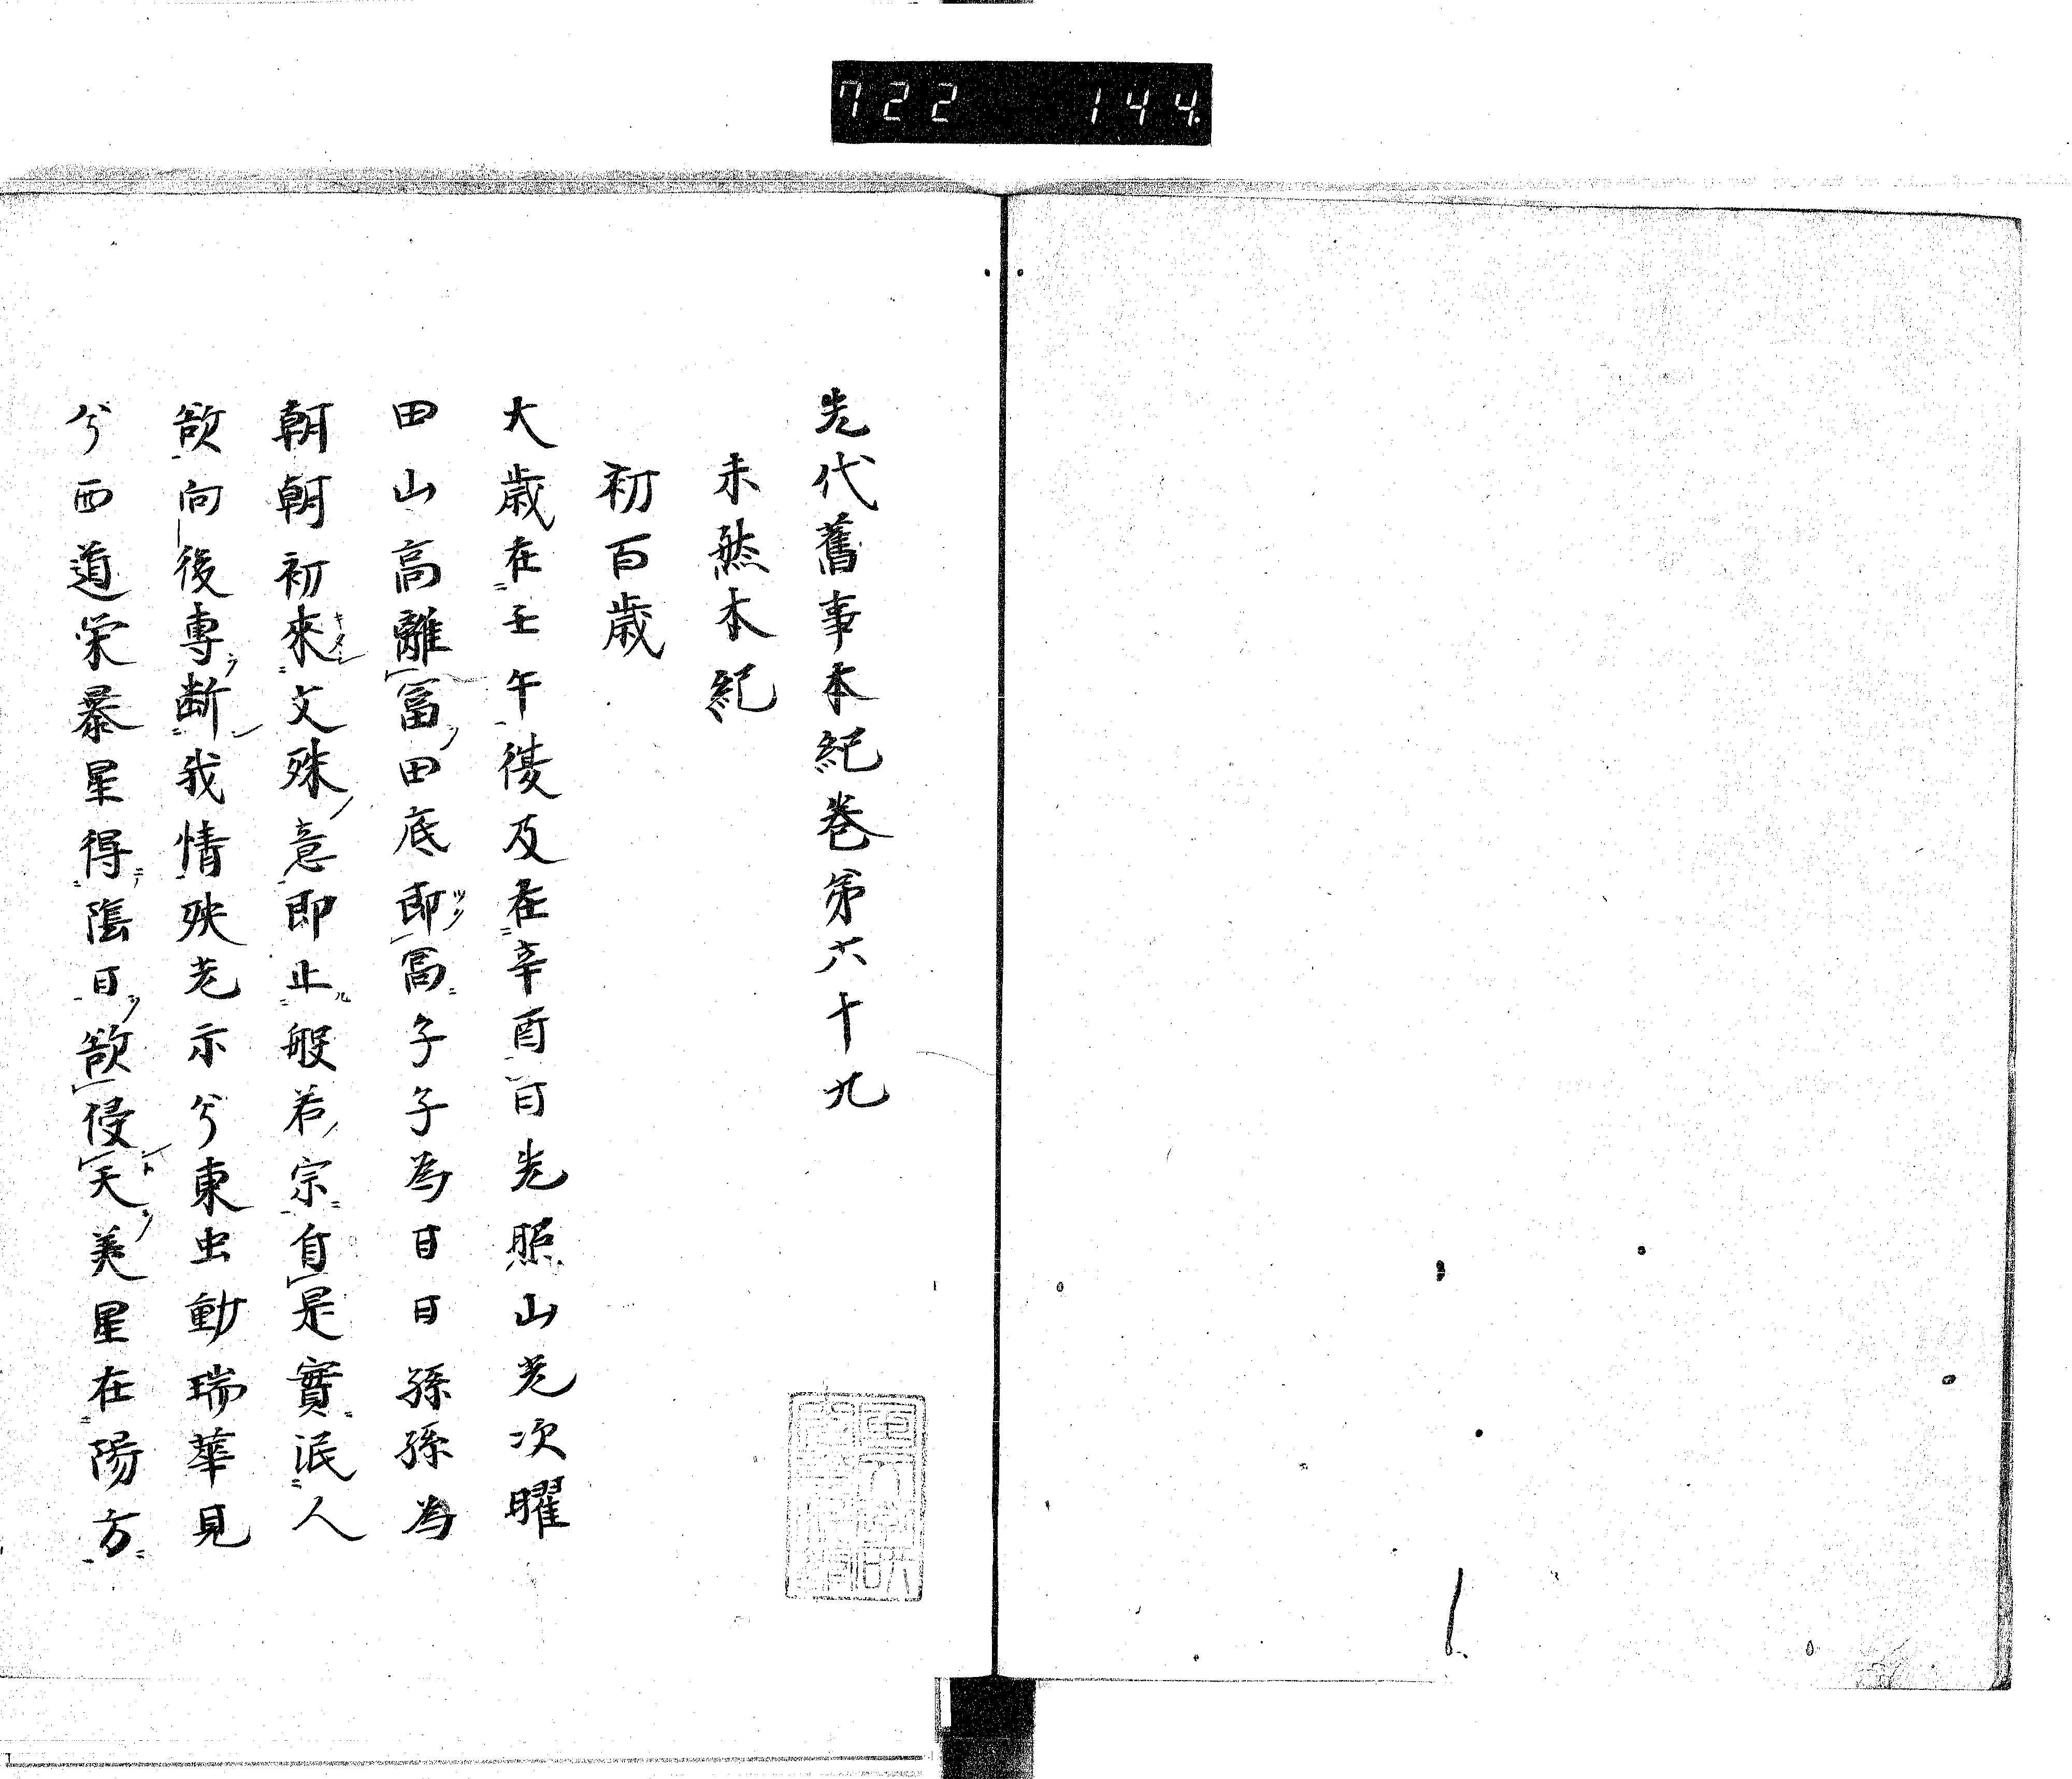 722 144
先代舊事本紀巻第六十九
未然本紀
初百歳
大歳在壬午後及在辛酉日光照山光次曜
田山高離冨田底即冨子子為日日孫孫為
朝朝初來文殊意即止般若宗自是實泯人
欲向後專断我情殃先示兮東虫動瑞華見
兮西道栄暴星得陰日欲侵天美星在陽方